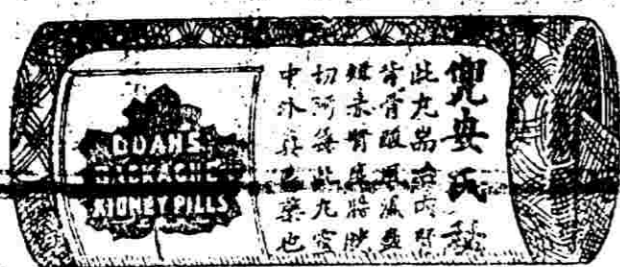 DOANS
BACKACHE
KIDNEY PILLS
兜安氏秘
此丸耑治內腎
背骨酸風濕
腎膀胱
切此丸實
中外真良藥也